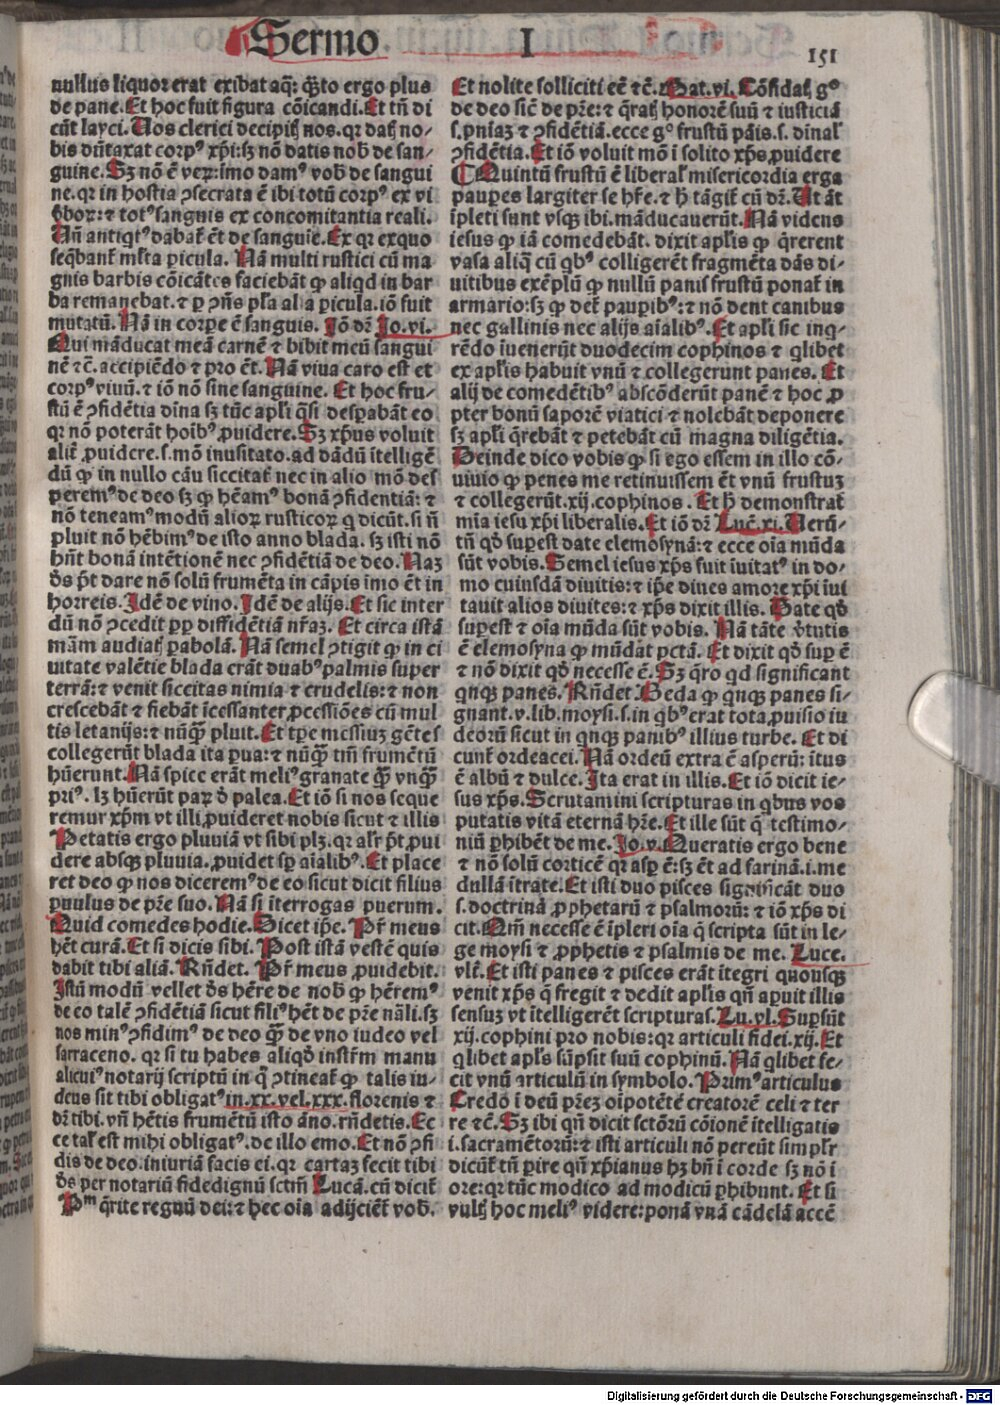 Sermo I
151
nullus liquor erat exibat aq̄: q̄to ergo plus
de pane. Et hoc fuit figura cōicandi. Et tn̄ di
cūt layci. Nos clerici decipiūt nos. qꝛ dāt no/
bis dūtaxat corpꝰ xp̄i: sꝫ nō datis nob̄ de san/
guine. Sꝫ nō ē veꝝ: imo damꝰ vob̄ de sangui
ne. qꝛ in hostia ꝯsecrata ē ibi totū corpꝰ ex vi
v̄boꝝ: ⁊ totꝰ sanguis ex concomitantia reali.
Uñ antiq̇tꝰ dabat̄ ēt de sanguīe. Ex qꝛ exquo
seq̄bant̄ ml̄ta picula. Nā multi rustici cū ma
gnis barbis cōicātes faciebāt ꝙ aliqd in bar
ba remanebat. ⁊ ꝑ ꝯn̄s pl̄a alia picula. iō fuit
mutatū. Nā in corpe ē sanguis. Iō dꝛ̄ Io. vi.
Qui māducat meā carnē ⁊ bibit meū sangui
nē ⁊c̄. accipiēdo ⁊ pro ēt. Nā viua caro est et
corpꝰ viuū. ⁊ iō nō sine sanguine. Et hoc fru/
stū ē ꝯfidētia dīna sꝫ tūc apl̄i q̄si despabāt eo
qꝛ nō poterāt hoībꝰ ꝓuidere. Sꝫ xp̄us voluit
alit̄ ꝓuidere. s. mō inusitato. ad dādū ītelligē
dū ꝙ in nullo cāu siccitat̄ nec in alio mō des
peremꝰ de deo sꝫ ꝙ hēamꝰ bonā ꝯfidentiā: ⁊
nō teneamꝰ modū alioꝝ rusticoꝝ q̇ dicūt. si n̄
pluit nō hēbimꝰ de isto anno blada. sꝫ isti nō
hn̄t bonā intētionē nec ꝯfidētiā de deo. Naꝫ
dꝰs pt̄ dare nō solū frumēta in cāpis imo ēt in
horreis. Idē de vino. Idē de alijs. Et sic inter
dū nō ꝯcedit ꝓp diffidētiā nr̄aꝫ. Et circa istā
mām audiatꝭ ꝑabolā. Nā semel ꝯtigit ꝙ in ci
uitate valētie blada erāt duabꝰ palmis super
terrā: ⁊ venit siccitas nimia ⁊ crudelis: ⁊ non
crescebāt ⁊ fiebāt īcessanter ꝓcessiōes cū mul
tis letanijs: ⁊ nūq̄ꝫ pluit. Et tp̄e messiuꝫ gētes
collegerūt blada ita ꝑua: ⁊ nūq̄ꝫ tm̄ frumētū
hūerunt. Nā spice erāt meliꝰ granate q̄ꝫ vnq̄ꝫ
priꝰ. lꝫ hūerūt paꝝ d̄ palea. Et iō si nos seque
remur xp̄m vt illi, ꝓuideret nobis sicut ⁊ illis
Petatis ergo pluuiā vt sibi plꝫ. qꝛ alr̄ pt̄ ꝓui
dere absqꝫ pluuia. ꝓuidet sp̄ aīalibꝰ. Et place
ret deo ꝙ nos diceremꝰ de eo sicut dicit filius
ꝑuulus de pr̄e suo. Nā si īterrogas puerum.
Quid comedes hodie. Dicet ip̄e. Pr̄ meus
hēt curā. Et si dicis sibi. Post istā vestē quis
dabit tibi aliā. Rn̄det. Pr̄ meus ꝓuidebit.
Istū modū vellet dꝰs hēre de nob̄ ꝙ hēremꝰ
de eo talē ꝯfidētiā sicut filiꝰ hēt de pr̄e nāli. sꝫ
nos minꝰ ꝯfidimꝰ de deo q̄ꝫ de vno iudeo vel
sarraceno. qꝛ si tu habes aliqd̄ instr̄m manu
alicuiꝰ notarij scriptū in q̇ ꝯtineat̄ ꝙ talis iu/
deus sit tibi obligatꝰ in. xx. vel. xxx. florenis ⁊
dꝛ̄ tibi. vn̄ hētis frumētū isto āno. rn̄detis. Ec
ce tal̄ est mihi obligatꝰ. de illo emo. Et nō ꝯfi
dis de deo. iniuriā facis ei. qꝛ cartaꝫ fecit tibi
dꝰs per notariū fidedignū sctm̄ Lucā. cū dicit̄
Pᵐ q̄rite regnū dei: ⁊ hec oīa adijciēt̄ vob̄.
Et nolite solliciti eē ⁊c̄. Mat. vi. Cōfidatꝭ gᵒ
de deo sic̄ de pr̄e: ⁊ q̄ratꝭ honorē suū ⁊ iusticiā
s. pn̄iaꝫ ⁊ ꝯfidētiā. ecce gᵒ frustū pāis. s. dīnal̄
ꝯfidētia. Et iō voluit mō ī solito xp̄s ꝓuidere
¶ Quintū frustū ē liberal̄ misericordia erga
paupes largiter se hr̄e. ⁊ h̄ tāgit̄ cū dꝛ̄. Ut āt
īpleti sunt vsqꝫ ibi. māducauerūt. Nā videns
iesus ꝙ iā comedebāt. dixit apl̄is ꝙ q̄rerent
vasa aliq̄ cū qbꝰ colligerēt fragmēta dās di/
uitibus exēplū ꝙ nullū panis frustū ponat̄ in
armario: sꝫ ꝙ det̄ paupibꝰ: ⁊ nō dent canibus
nec gallinis nec alijs aīalibꝰ. Et apl̄i sic inq̇/
rēdo īuenerūt duodecim cophinos ⁊ qlibet
ex apl̄is habuit vnū ⁊ collegerunt panes. Et
alij de comedētibꝰ abscōderūt panē ⁊ hoc ꝓ
pter bonū saporē viatici ⁊ nolebāt deponere
sꝫ apl̄i q̄rebāt ⁊ petebāt cū magna diligētia.
Deinde dico vobis ꝙ si ego essem in illo cō/
uiuio ꝙ penes me retinuissem ēt vnū frustuꝫ
⁊ collegerūt. xij. cophinos. Et h̄ demonstrat̄
mīa iesu xp̄i liberalis. Et iō dꝛ̄ Luc̄. xi. Uerū/
tn̄ qd̄ supest date elemosynā: ⁊ ecce oīa mūda
sūt vobis. Semel iesus xp̄s fuit īuitatꝰ in do/
mo cuiusdā diuitis: ⁊ ip̄e diues amore xp̄i īui
tauit alios diuites: ⁊ xp̄s dixit illis. Date qd̄
supest ⁊ oīa mūda sūt vobis. Nā tāte v̄tutis
ē elemosyna ꝙ mūdat pctā. Et dixit qd̄ sup ē
⁊ nō dixit qd̄ necesse ē. Sꝫ q̄ro qd significant
qnqꝫ panes. Rn̄det Beda ꝙ qnqꝫ panes si/
gnant. v. lib. moysi. s. in qbꝰ erat tota ꝓuisio iu
deorū sicut in qnqꝫ panibꝰ illius turbe. Et di
cunt̄ ordeacei. Nā ordeū extra ē asperū: ītus
ē albū ⁊ dulce. Ita erat in illis. Et iō dicit ie/
sus xp̄s. Scrutamini scripturas in qbus vos
putatis vitā eternā hr̄e. Et ille sūt q̄ testimo/
niū ꝑhibēt de me. Io. v. Queratis ergo bene
⁊ nō solū corticē qꝛ asp ē: sꝫ ēt ad farinā. i. me
dullā ītrate. Et isti duo pisces significāt duo
s. doctrinā ꝓphetarū ⁊ psalmorū: ⁊ iō xp̄s di
cit. Qm̄ necesse ē īpleri oīa q̄ scripta sūt in le/
ge moysi ⁊ ꝓphetis ⁊ psalmis de me. Luce.
vlt̄. Et isti panes ⁊ pisces erāt ītegri quousqꝫ
venit xp̄s q̇ fregit ⁊ dedit apl̄is qn̄ apuit illis
sensuꝫ vt ītelligerēt scripturas. Lu. vl. Supsūt
xij. cophini pro nobis: qꝛ articuli fidei. xij. Et
qlibet apl̄s sūpsit suū cophinū. Nā qlibet fe/
cit vnū articulū in symbolo. Primꝰ articulus
Credo ī deū pr̄eꝫ oīpotētē creatorē celi ⁊ ter
re ⁊c̄. Sꝫ ibi qn̄ dicit sctōrū cōionē ītelligatis
i. sacramētorū: ⁊ isti articuli nō pereūt simplr̄
dicūt̄ tn̄ pire qn̄ xp̄ianus hꝫ bn̄ ī corde sꝫ nō ī
ore: qꝛ tūc modico ad modicū ꝑhibunt. Et si
vultꝭ hoc meliꝰ videre: ponā vnā cādelā accē
Digitalisierung gefördert durch die Deutsche Forschungsgemeinschaft - DFG